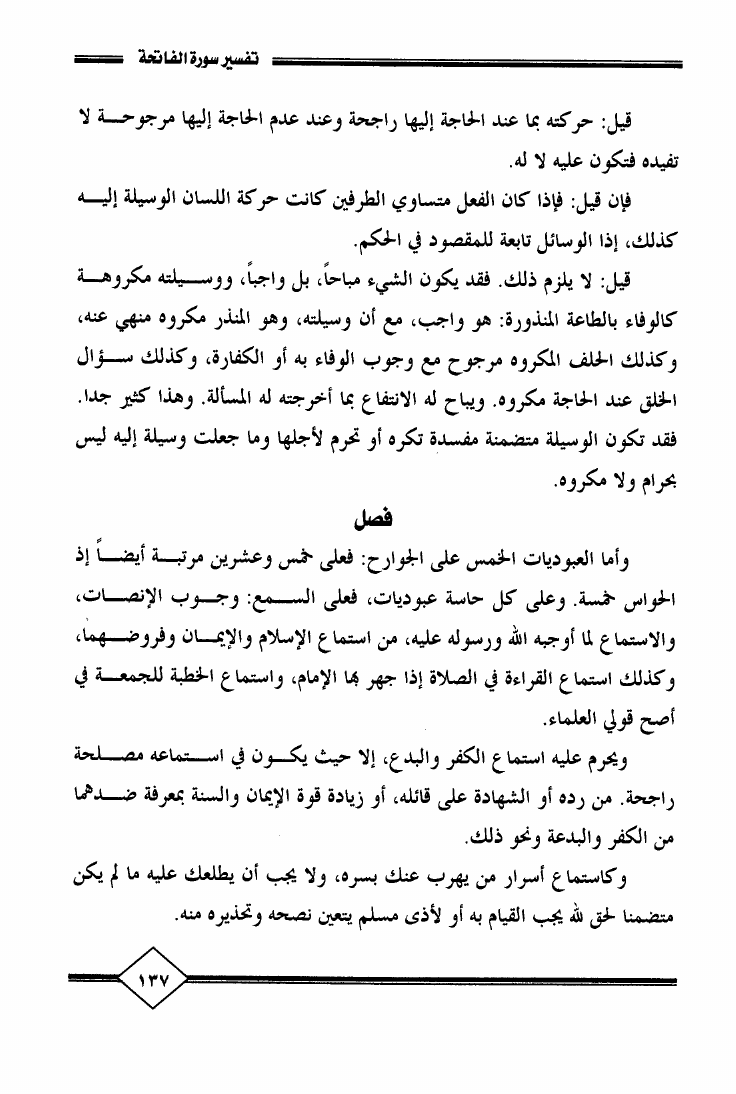 تفسير سورة الفاتحة
قيل: حركته بها عند الحاجة إليها راجحة وعند عدم الحاجة إليها مرجوحة لا
تفيده فتكون عليه لا له.
فإن قيل: فإذا كان الفعل متساوي الطرفين كانت حركة اللسان الوسيلة إليه
كذلك، إذا الوسائل تابعة للمقصود في الحكم.
قيل: لا يلزم ذلك. فقد يكون الشيء مباحاً، بل واجباً، ووسيلته مكروهة
كالوفاء بالطاعة المنذورة: هو واجب، مع أن وسيلته، وهو المنذر مكروه منهي عنه،
وكذلك الحلف المكروه مرجوح مع وجوب الوفاء به أو الكفارة، وكذلك سؤال
الخلق عند الحاجة مكروه. ويباح له الانتفاع بما أخرجته له المسألة. وهذا كثير جدا.
فقد تكون الوسيلة متضمنة مفسدة تكره أو تحرم لأجلها وما جعلت وسيلة إليه ليس
بحرام ولا مكروه.
فصل
وأما العبوديات الخمس على الجوارح: فعلى خمس وعشرين مرتبة أيضاً إذ
الحواس خمسة. وعلى كل حاسة عبوديات، فعلى السمع: وجوب الإنصات،
والاستماع لما أوجبه الله ورسوله عليه، من استماع الإسلام والإيمان وفروضهما،
وكذلك استماع القراءة في الصلاة إذا جهر بها الإمام، واستماع الخطبة للجمعة في
أصح قولي العلماء.
ويحرم عليه استماع الكفر والبدع، إلا حيث يكون في استماعه مصلحة
راجحة. من رده أو الشهادة على قائله، أو زيادة قوة الإيمان والسنة بمعرفة ضدهما
من الكفر والبدعة ونحو ذلك.
وكاستماع أسرار من يهرب عنك بسره، ولا يجب أن يطلعك عليه ما لم يكن
متضمنا لحق لله يجب القيام به أو لأذى مسلم يتعين نصحه وتحذيره منه.
١٣٧